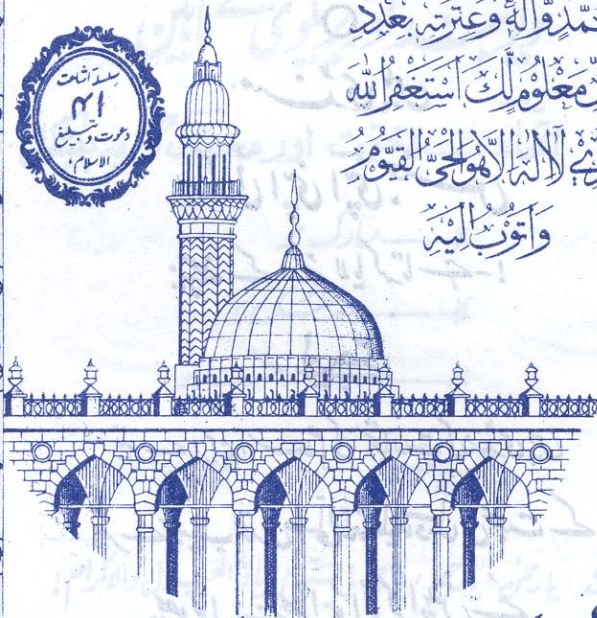 سلسلہ اشاعت
۴۱
دعوت و تبلیغ
الاسلام
وَّاٰلِهٖ وَعِتْرَتِهٖ بِعَدَدِ
مَعْلُوْمٍ لَّكَ اَسْتَغْفِرُ اللّٰهَ
لَآ اِلٰهَ اِلَّا هُوَ الْحَیُّ الْقَیُّوْمُ
وَاَتُوْبُ اِلَیْهِ